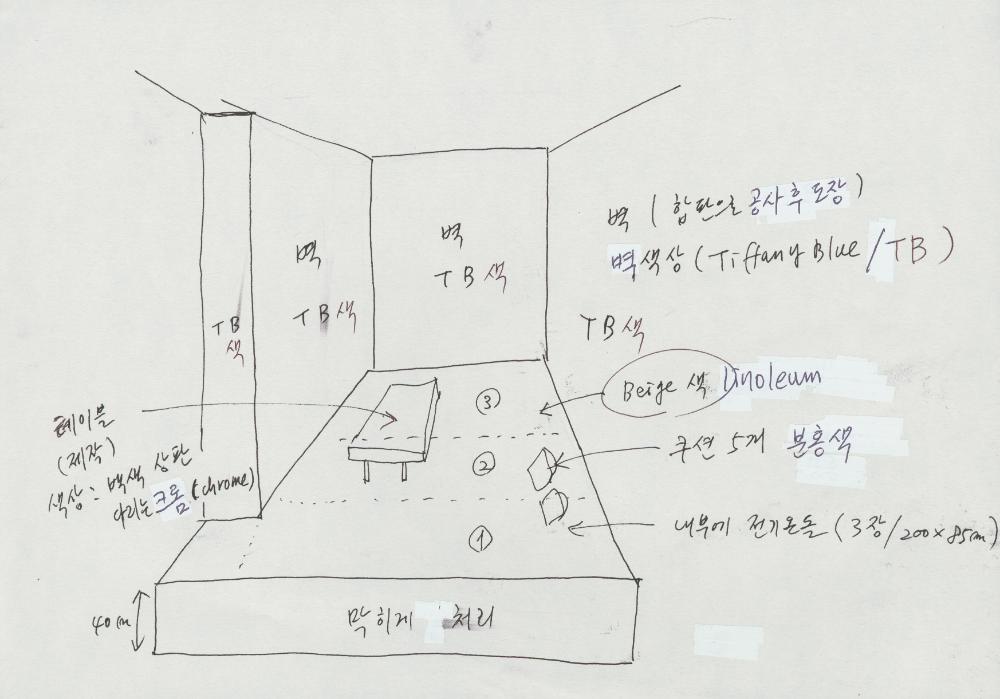 벽 (합판으로 공사후 도장)
벽색상 (Tiffany Blue / TB)
벽
TB색
벽
TB색
TB
색
TB색
Beige 색 linoleum
쿠션 5개 분홍색
내부에 전기온돌 (3장/200×85cm)
테이블
(제작)
색상: 백색 상판
다리는 크롬 (chrome)
③
②
①
40cm
막히게 처리